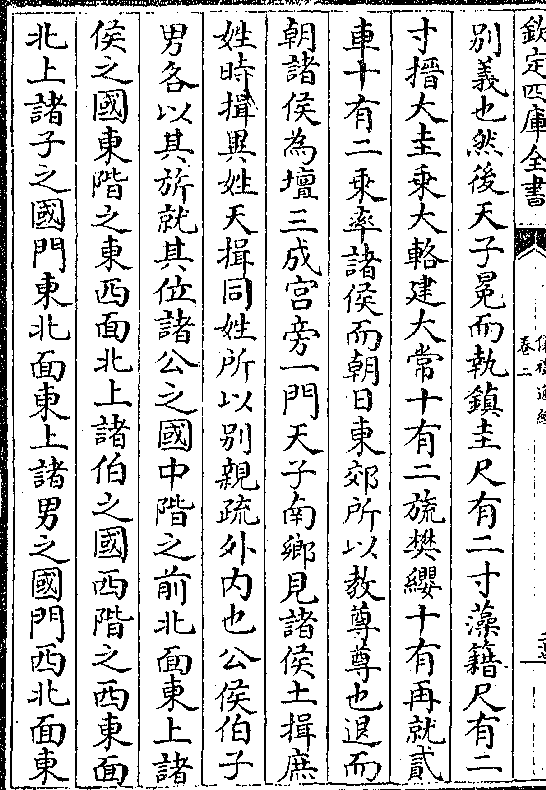 欽定四庫全書
卷二
別義也然後天子冕而執鎮圭尺有二寸藻籍尺有二
寸搢大圭乗大輅建大常十有二旒樊纓十有再就貳
車十有二乘率諸侯而朝日東郊所以教尊尊也退而
朝諸侯為壇三成宫旁一門天子南鄉見諸侯土揖庶
姓時揖異姓天揖同姓所以别親疏外内也公侯伯子
男各以其旂就其位諸公之國中階之前北面東上諸
侯之國東階之東西面北上諸伯之國西階之西東面
北上諸子之國門東北面東上諸男之國門西北面東